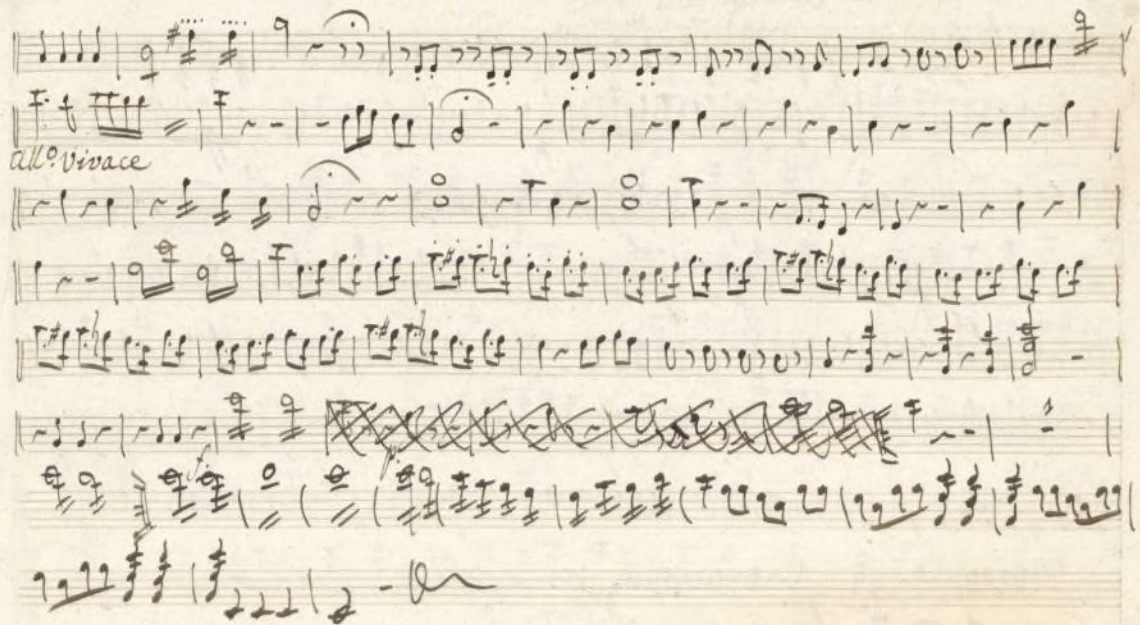 All.º Vivace
f.
p.